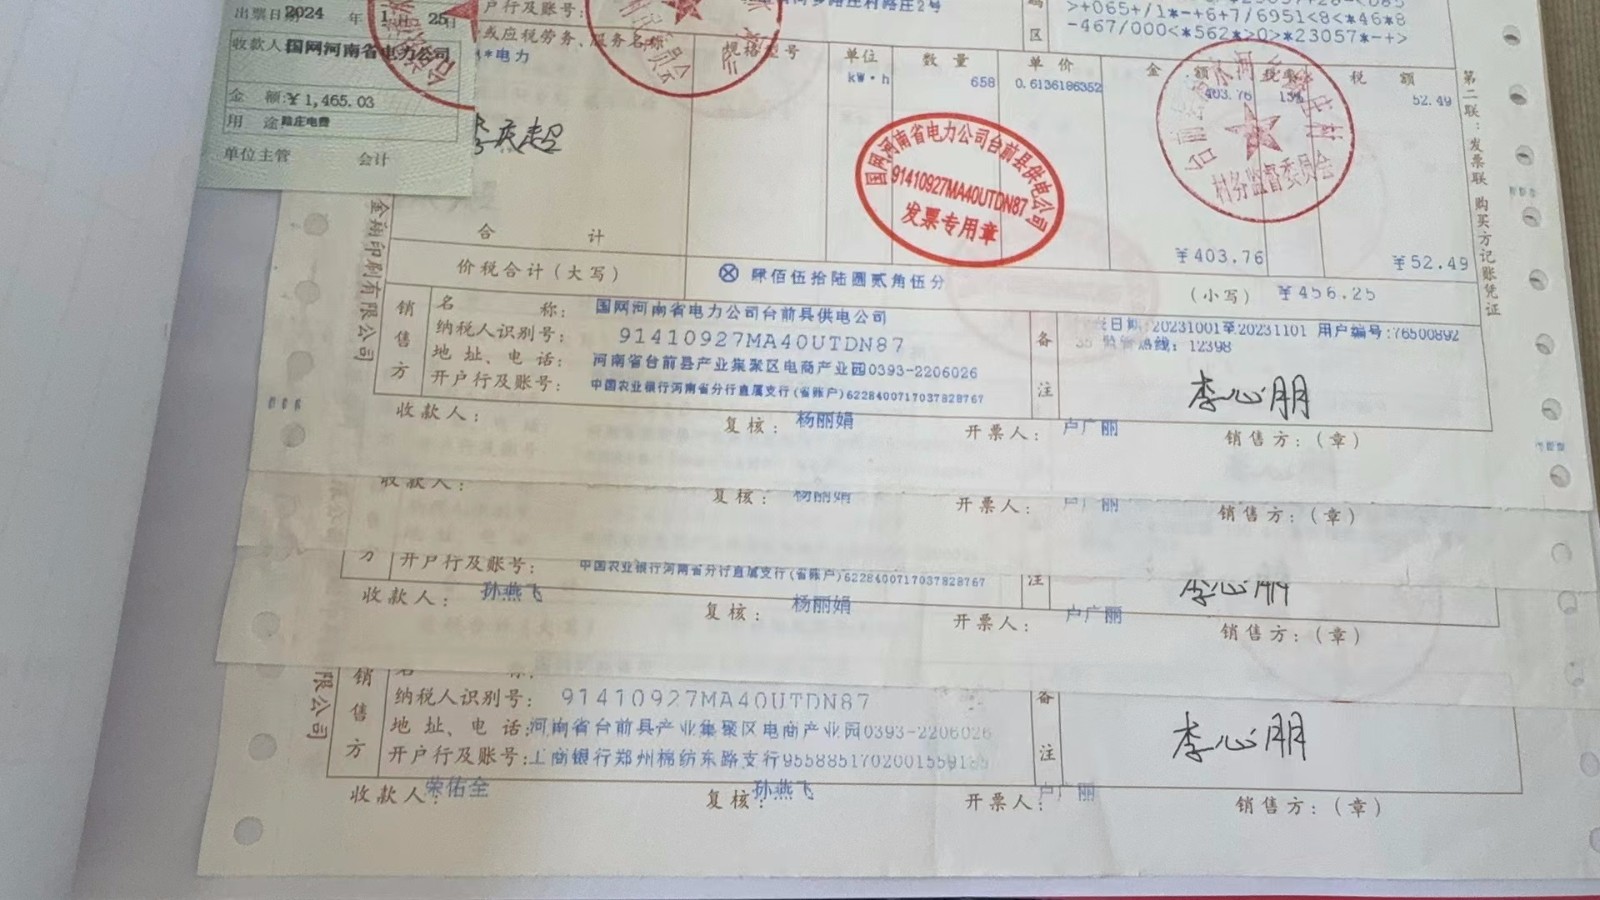 出票日期2024年1月25日
收款人国网河南省电力公司
金 额:¥1,465.03
用 途陆庄电费
单位主管 会计
户行及账号:
村路庄2号
>+065+/1*-+6+7/6951<8<*46*8
区 -467/000<*562*>0>*23057*-+>
或应税劳务、服务名称 规格型号 单位 数 量 单 价 金 额 税率 税 额
*电力 kW·h 658 0.6136186352 403.76 13% 52.49
国网河南省电力公司台前县供电公司
91410927MA40UTDN87
发票专用章
村务监督委员会
第二联:发票联 购买方记账凭证
合 计 ¥403.76 ¥52.49
价税合计(大写) ⊗ 肆佰伍拾陆圆贰角伍分 (小写) ¥456.25
销售方
名 称: 国网河南省电力公司台前县供电公司
纳税人识别号: 91410927MA40UTDN87
地 址、电 话: 河南省台前县产业集聚区电商产业园0393-2206026
开户行及账号: 中国农业银行河南省分行直属支行(省账户)6228400717037828767
备注
日期:20231001至20231101 用户编号:76500892
监管热线: 12398
李心朋
收款人: 复核: 杨丽娟 开票人: 卢广丽 销售方:(章)
金 印刷有限公司
收款人: 复核: 杨丽娟 开票人: 卢广丽 销售方:(章)
方 开户行及账号: 中国农业银行河南省分行直属支行(省账户)6228400717037828767 注 李心朋
收款人: 孙燕飞 复核: 杨丽娟 开票人: 卢广丽 销售方:(章)
限公司
销售方
纳税人识别号: 91410927MA40UTDN87
地 址、电 话:河南省台前县产业集聚区电商产业园0393-2206026
开户行及账号:工商银行郑州棉纺东路支行
备注
李心朋
收款人:荣佑全 复核:孙燕飞 开票人:卢广丽 销售方:(章)